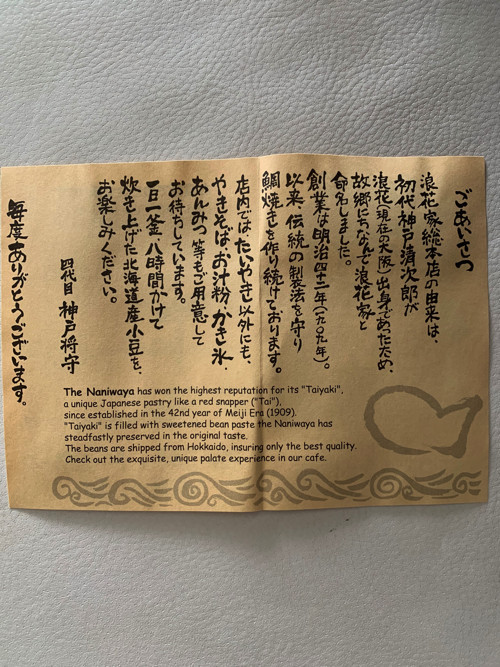 ごあいさつ
浪花家総本店の由来は、
初代神戸清次郎が
浪花(現在の大阪)出身であったため、
故郷にちなんで浪花家と
命名しました。
創業は明治四十二年(一九〇九年)。
以来、伝統の製法を守り
鯛焼きを作り続けております。
店内では、たいやき以外にも、
やきそば、お汁粉、かき氷、
あんみつ 等もご用意して
お待ちしています。
一日一釜、八時間かけて
炊き上げた北海道産小豆を、
お楽しみください。
四代目 神戸将守
毎度ありがとうございます。
The Naniwaya has won the highest reputation for its "Taiyaki",
a unique Japanese pastry like a red snapper ("Tai"),
since established in the 42nd year of Meiji Era (1909).
"Taiyaki" is filled with sweetened bean paste the Naniwaya has
steadfastly preserved in the original taste.
The beans are shipped from Hokkaido, insuring only the best quality.
Check out the exquisite, unique palate experience in our cafe.